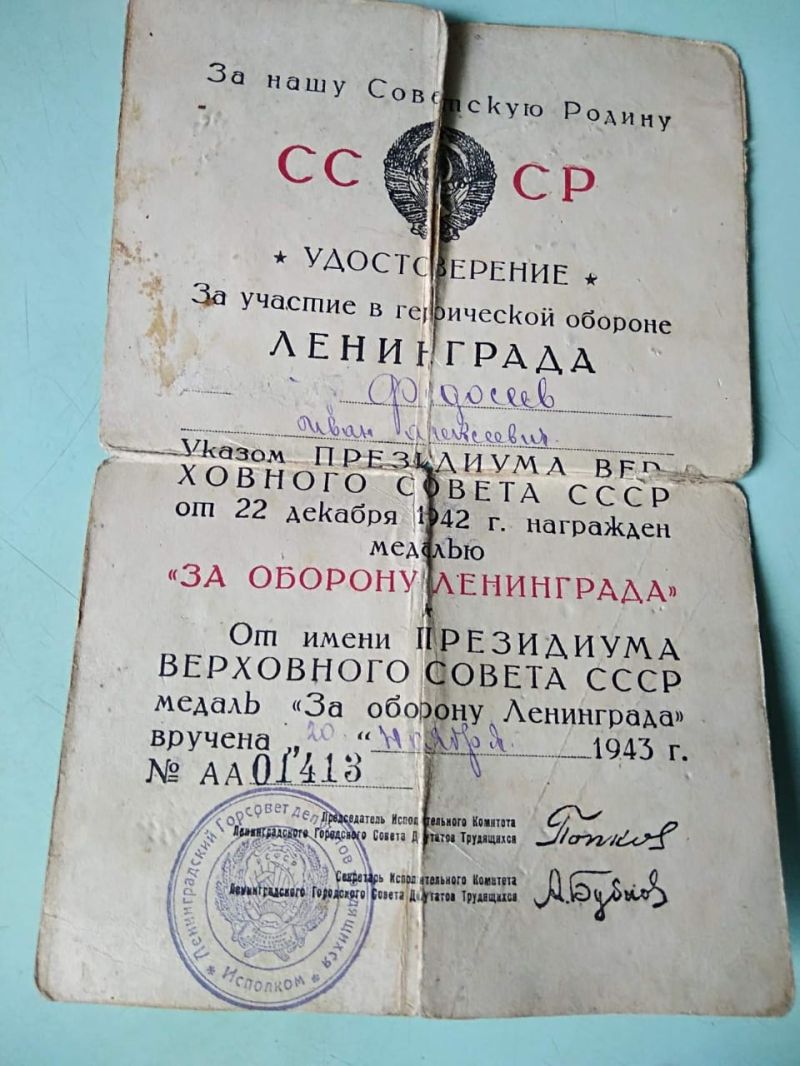 За нашу Советскую Родину
СССР
★ УДОСТОВЕРЕНИЕ ★
За участие в героической обороне
ЛЕНИНГРАДА
Федосеев
Иван Алексеевич
Указом ПРЕЗИДИУМА ВЕР
ХОВНОГО СОВЕТА СССР
от 22 декабря 1942 г. награжден
медалью
«ЗА ОБОРОНУ ЛЕНИНГРАДА»
От имени ПРЕЗИДИУМА
ВЕРХОВНОГО СОВЕТА СССР
медаль «За оборону Ленинграда»
вручена „20“ ноября 1943 г.
№ АА 01413
Председатель Исполнительного Комитета
Ленинградского Городского Совета Депутатов Трудящихся
Попков
Секретарь Исполнительного Комитета
Ленинградского Городского Совета Депутатов Трудящихся
А. Бубнов
Ленинградский Горсовет депутатов трудящихся
★ Исполком ★